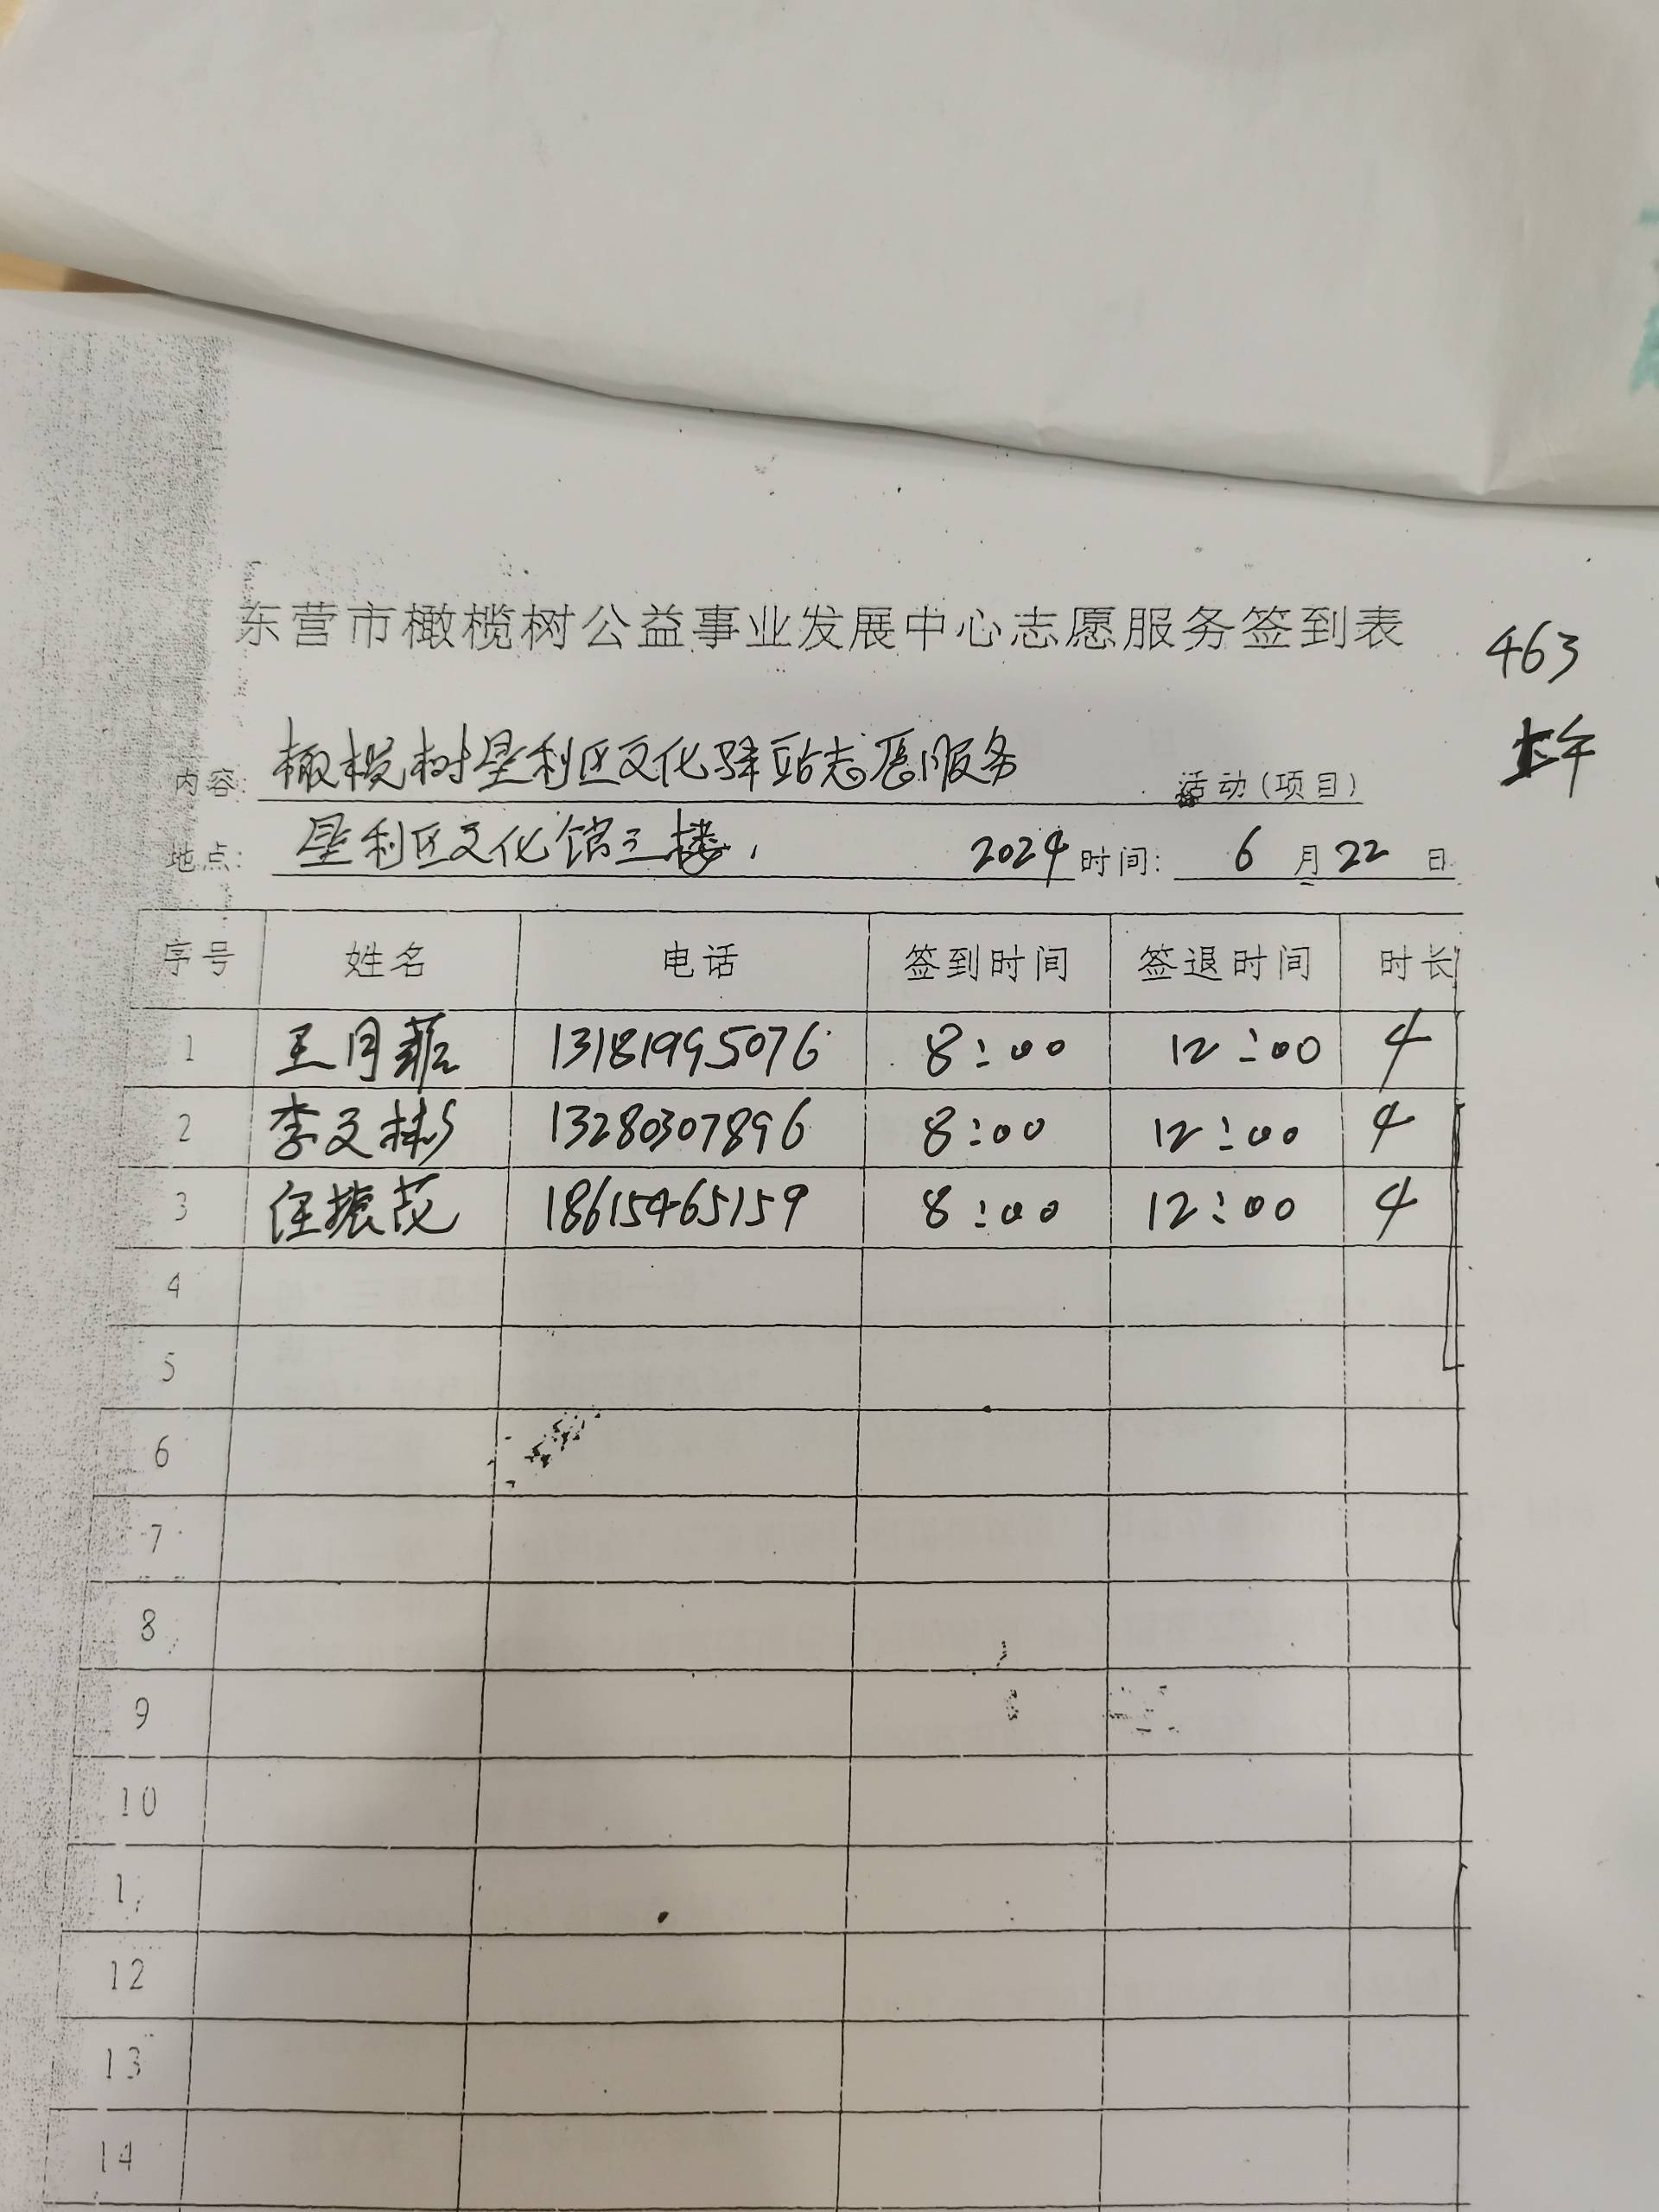 东营市橄榄树公益事业发展中心志愿服务签到表 463
上午
内容: 橄榄树垦利区文化驿站志愿服务 活动(项目)
地点: 垦利区文化馆三楼, 2024 时间: 6 月 22 日
序号 姓名 电话 签到时间 签退时间 时长
1 王月菲 13181995076 8:00 12:00 4
2 李文彬 13280307896 8:00 12:00 4
3 任振茂 18615465159 8:00 12:00 4
4
5
6
7
8
9
10
1
12
13
14